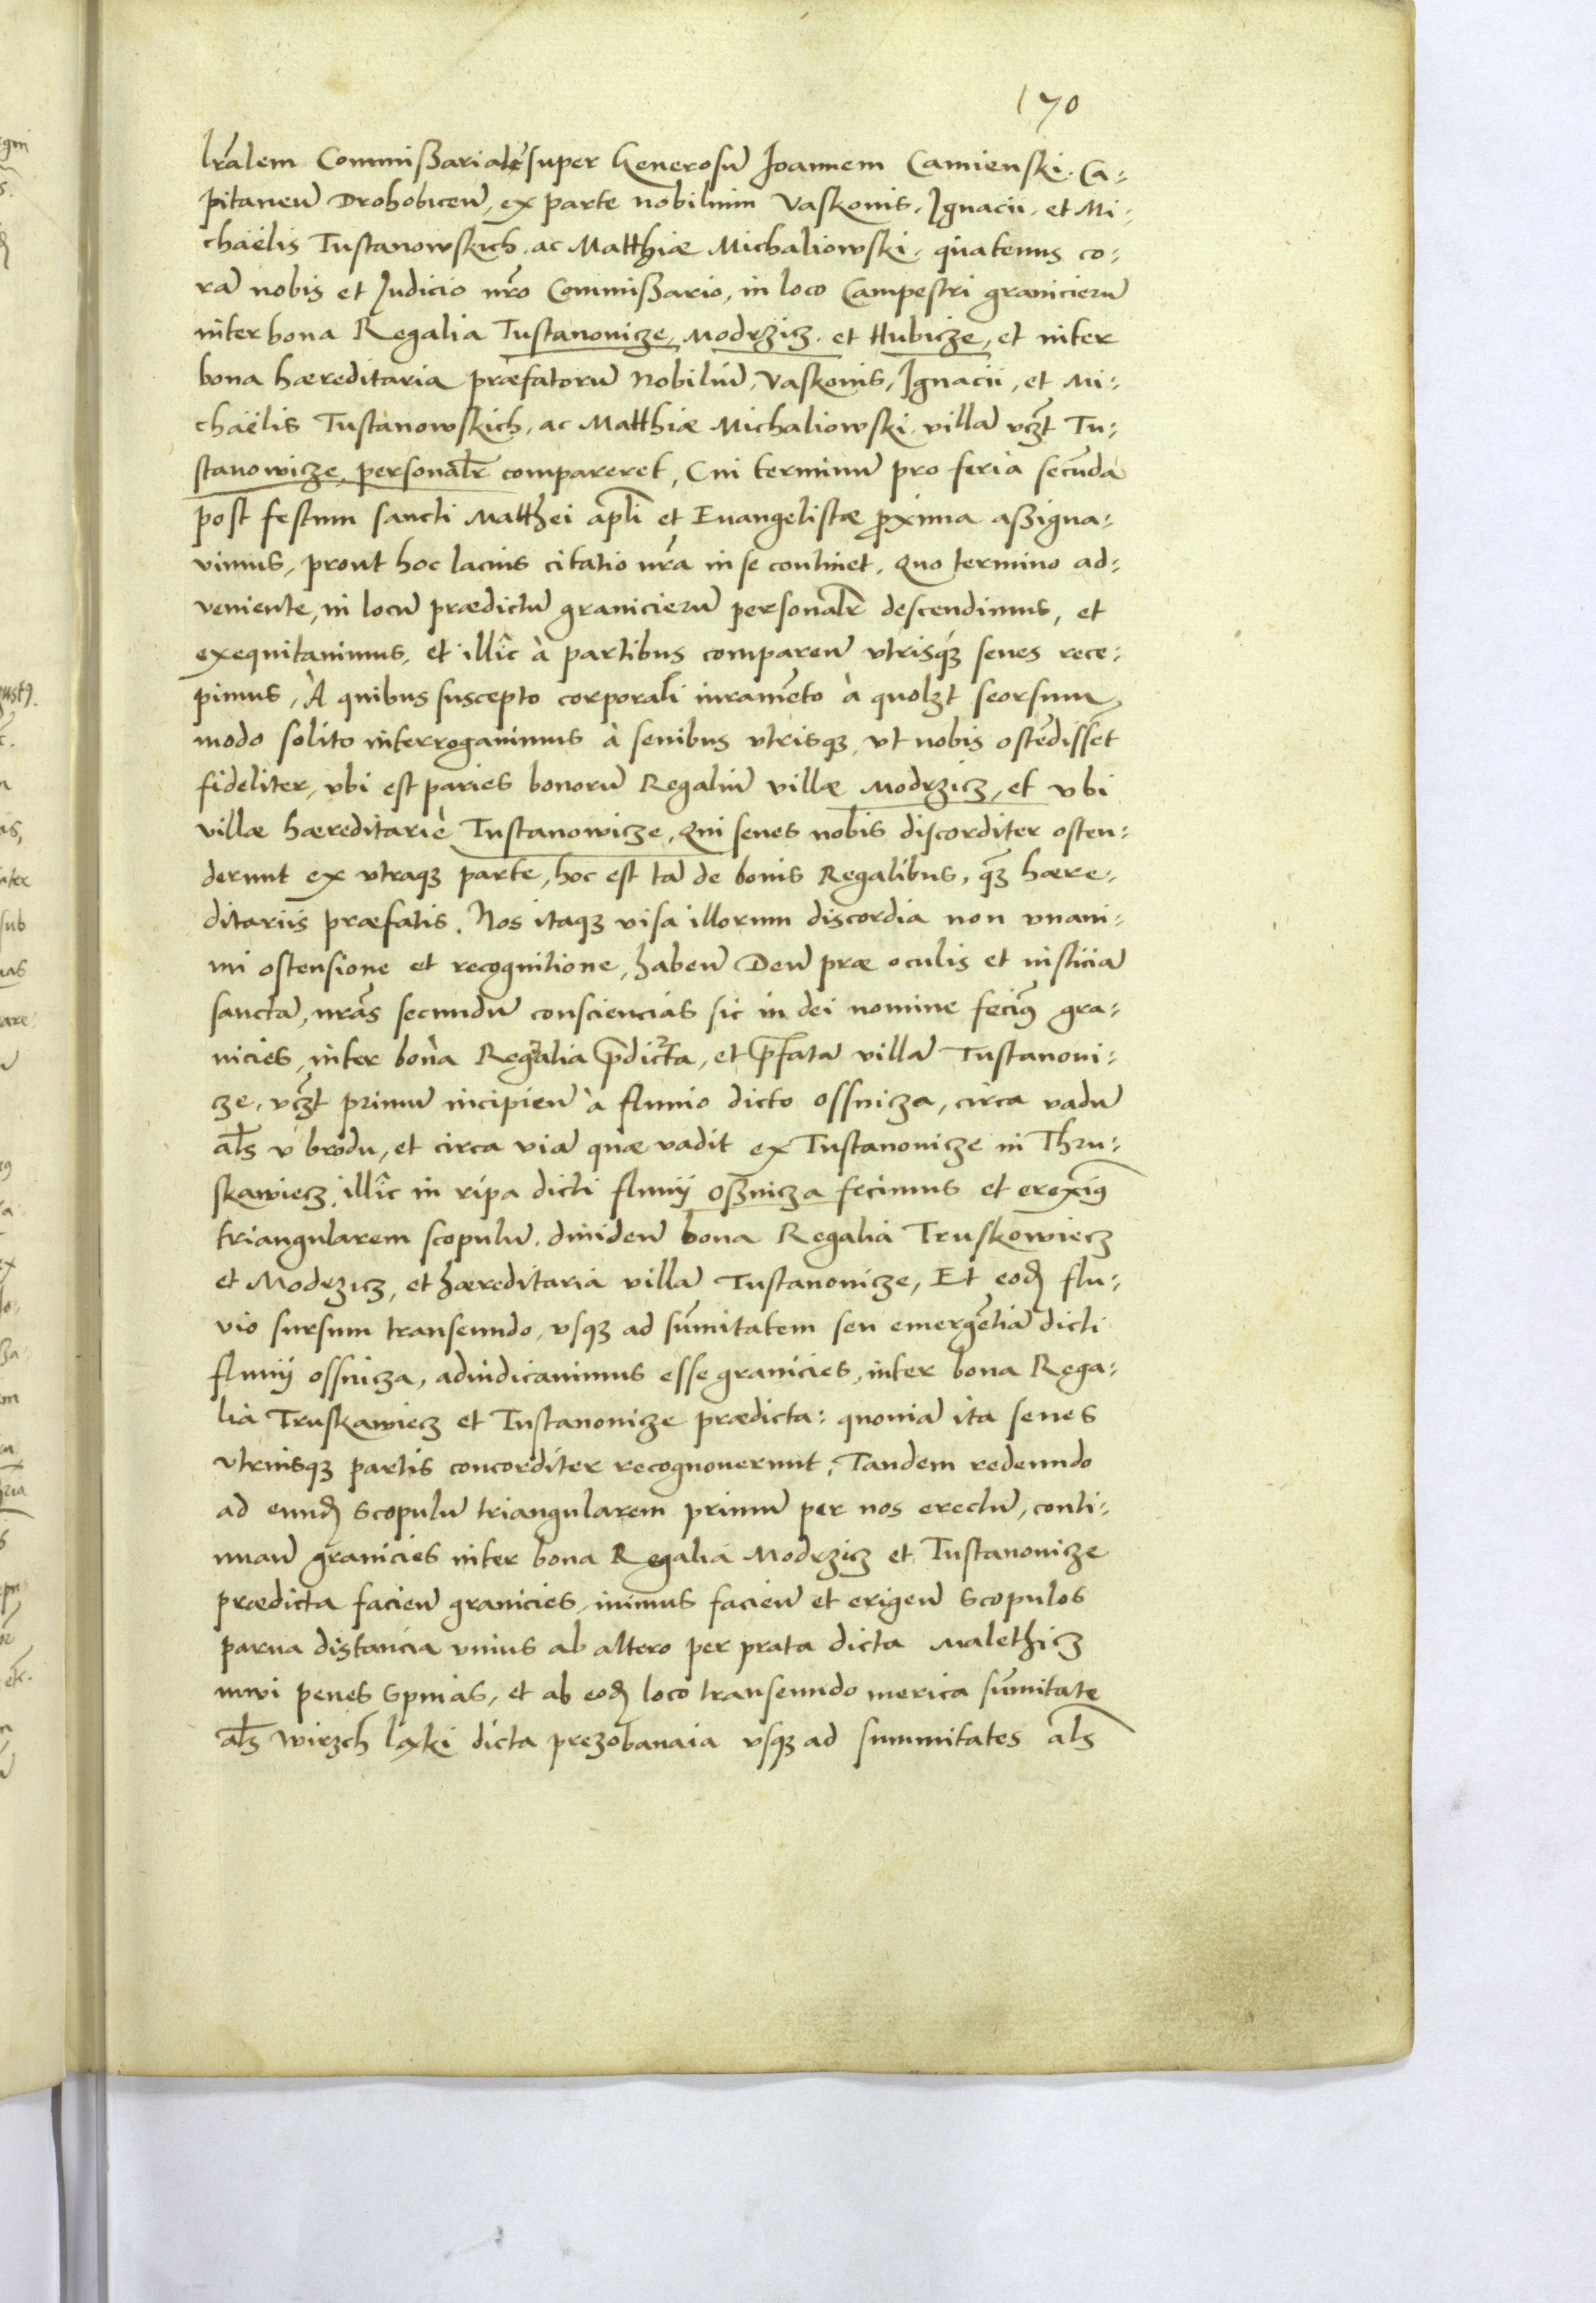 170
lrãlem Commißarialẽ super Generosũ Joannem Camienski. Ca:
pitaneũ Drohobiceñ, ex parte nobilium Vaskonis, Ignacii, et Mi:
chaëlis Tustanowskich, ac Matthiæ Michaliowski, quatenus co:
rã nobis et Judicio nr̃o Commißario, in loco Campestri granicierũ
inter bona Regalia Tustanouicze, Modrzicz. et Hubicze, et inter
bona hæreditaria præfatorũ Nobiliũ, Vaskonis, Ignacii, et Mi:
chaëlis Tustanowskich, ac Matthiæ Michaliowski, villã vcz̃t Tu:
stanowicze, personalr̃ compareret, Cui terminũ pro feria secũda
post festum sancti Matthei apl̃i et Euangelistæ p̃xima aßigna:
uimus, prout hoc lacius citatio nr̃a in se continet. Quo termino ad:
veniente, in locũ prædictũ granicierũ personalr̃ descendimus, et
exequitauimus, et illîc à partibus compareñ vtrisq́ꝫ senes rece:
pimus, À quibus suscepto corporali iuramẽto à quolzt seorsum,
modo solito interrogauimus à senibus vtrisqꝫ, vt nobis ostẽdisset
fideliter, vbi est paries bonorũ Regaliũ villæ Modrzicz, et vbi
villæ hæreditariè Tustanowicze, Qui senes nobis discorditer osten:
derunt ex vtraqꝫ parte, hoc est tã de bonis Regalibus, q̃ꝫ hære:
ditariis præfatis. Nos itaqꝫ visa illorum discordia non vnani:
mi ostensione et recognitione, habeñ Deũ præ oculis et iusticiã
sanctã, nr̃as secundũ consciencias sic in dei nomine feciꝰ gra:
nicies, inter bona Regalia p̃dicta, et p̃fatã villã Tustanoui:
cze, vcz̃t primũ incipieñ à fluuio dicto Ossnicza, circa vadũ
al̃s v brodu, et circa viã quæ vadit ex Tustanouicze in Thru:
skawiecz, illîc in ripa dicti fluuij Oßnicza fecimus et erexiꝰ
triangularem scopulũ, diuideñ bona Regalia Truskowiecz
et Modrzicz, et hæreditariã villã Tustanouicze, Et eod̃ flu:
vio sursum transeundo, vsqꝫ ad sum̃itatem seu emergẽtiã dicti
fluuij Ossnicza, adiudicauimus esse granicies, inter bona Rega:
lia Truskawiecz et Tustanouicze prædicta: quoniã ita senes
vtriusqꝫ partis concorditer recognouerunt. Tandem redeundo
ad eund̃ scopulũ triangularem primũ per nos erectũ, conti:
nuañ granicies inter bona Regalia Modrzicz et Tustanouicze
prædicta facieñ granicies, iuimus facieñ et erigeñ scopulos
parua distancia vnius ab altero per prata dicta Malethicz
penes spinas, et ab eod̃ loco transeundo merica sum̃itate
al̃s wirzch laxki dicta prezobanaia vsqꝫ ad summitates al̃s